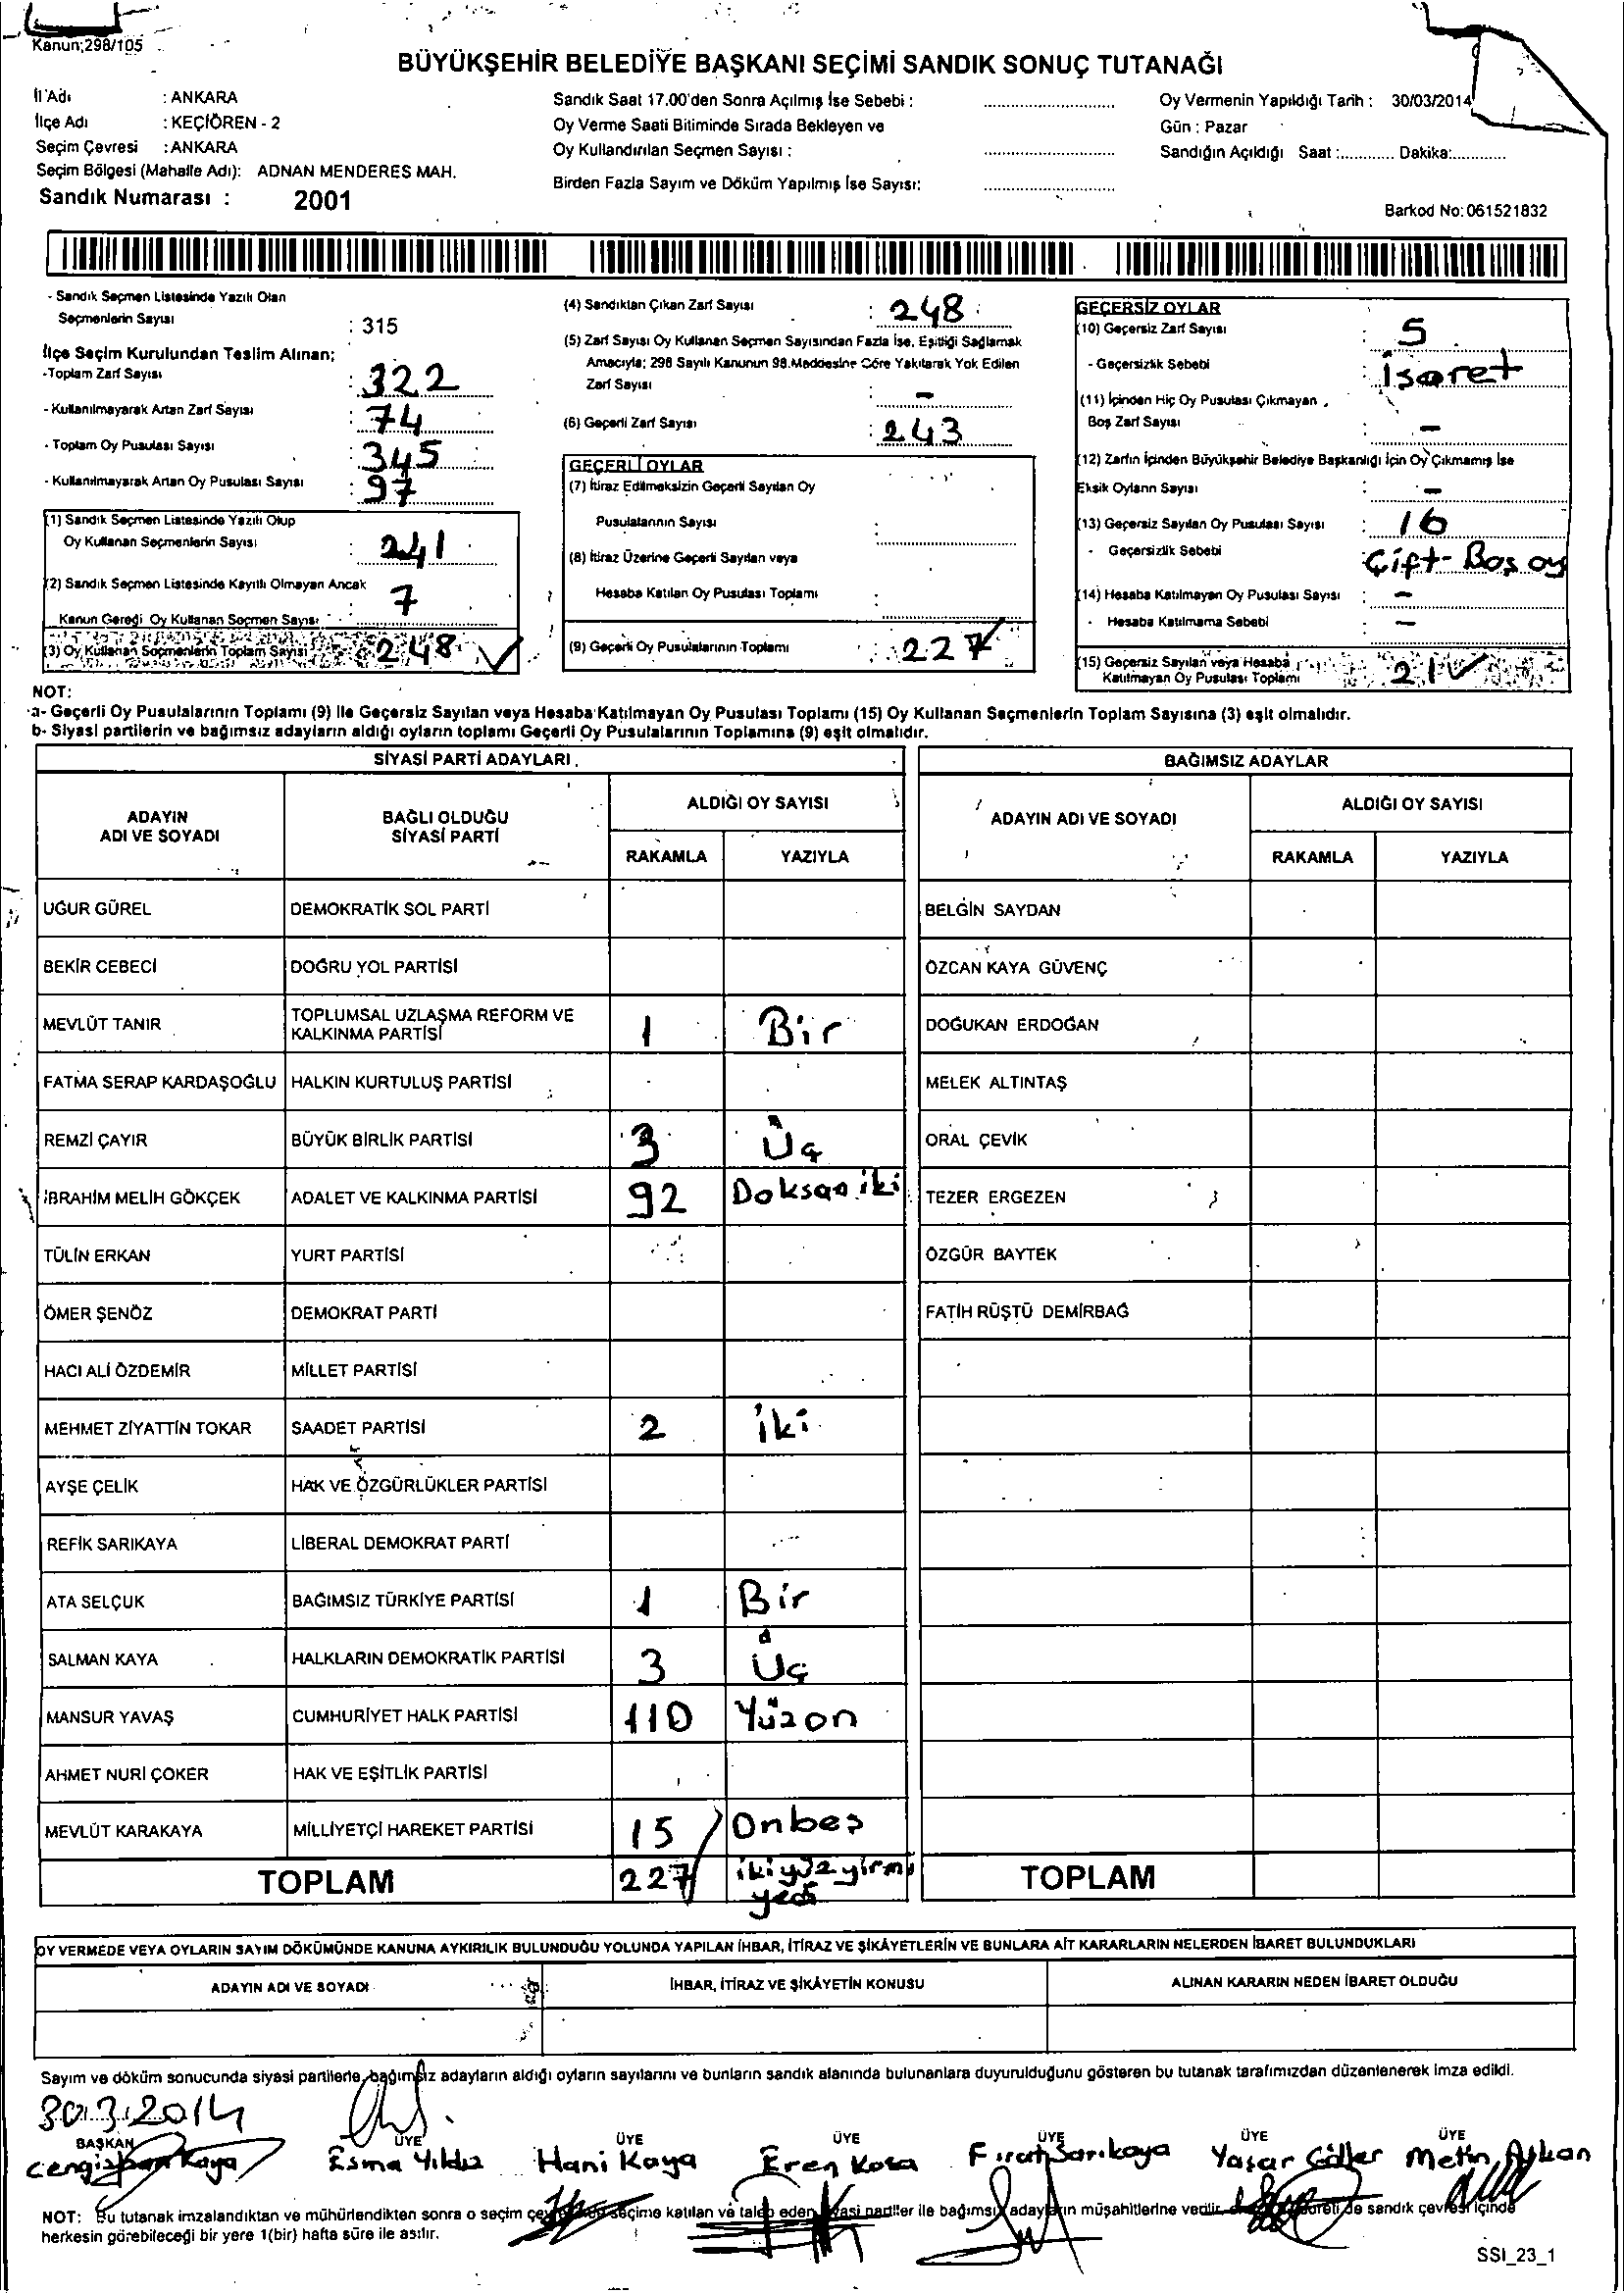 Kanun;298/105
BÜYÜKŞEHİR BELEDİYE BAŞKANI SEÇİMİ SANDIK SONUÇ TUTANAĞI
İl Adı : ANKARA
İlçe Adı : KEÇİÖREN - 2
Seçim Çevresi : ANKARA
Seçim Bölgesi (Mahalle Adı): ADNAN MENDERES MAH.
Sandık Numarası : 2001
Sandık Saat 17.00'den Sonra Açılmış İse Sebebi :
Oy Verme Saati Bitiminde Sırada Bekleyen ve
Oy Kullandırılan Seçmen Sayısı :
Birden Fazla Sayım ve Döküm Yapılmış İse Sayısı:
Oy Vermenin Yapıldığı Tarih : 30/03/2014
Gün : Pazar
Sandığın Açıldığı Saat :............ Dakika:............
Barkod No: 061521832
- Sandık Seçmen Listesinde Yazılı Olan
Seçmenlerin Sayısı : 315
İlçe Seçim Kurulundan Teslim Alınan;
-Toplam Zarf Sayısı : 322
- Kullanılmayarak Artan Zarf Sayısı : 74
- Toplam Oy Pusulası Sayısı : 345
- Kullanılmayarak Artan Oy Pusulası Sayısı : 97
(1) Sandık Seçmen Listesinde Yazılı Olup
Oy Kullanan Seçmenlerin Sayısı : 241
(2) Sandık Seçmen Listesinde Kayıtlı Olmayan Ancak
Kanun Gereği Oy Kullanan Seçmen Sayısı : 7
(3) Oy Kullanan Seçmenlerin Toplam Sayısı : 248
(4) Sandıktan Çıkan Zarf Sayısı : 248
(5) Zarf Sayısı Oy Kullanan Seçmen Sayısından Fazla İse, Eşitliği Sağlamak
Amacıyla; 298 Sayılı Kanunun 98.Maddesine Göre Yakılarak Yok Edilen
Zarf Sayısı : -
(6) Geçerli Zarf Sayısı : 243
GEÇERLİ OYLAR
(7) İtiraz Edilmeksizin Geçerli Sayılan Oy
Pusulalarının Sayısı :
(8) İtiraz Üzerine Geçerli Sayılan veya
Hesaba Katılan Oy Pusulası Toplamı :
(9) Geçerli Oy Pusulalarının Toplamı : 227
GEÇERSİZ OYLAR
(10) Geçersiz Zarf Sayısı : 5
- Geçersizlik Sebebi : İşaret
(11) İçinden Hiç Oy Pusulası Çıkmayan
Boş Zarf Sayısı : -
(12) Zarfın İçinden Büyükşehir Belediye Başkanlığı İçin Oy Çıkmamış İse
Eksik Oyların Sayısı : -
(13) Geçersiz Sayılan Oy Pusulası Sayısı : 16
- Geçersizlik Sebebi : Çift - Boş oy
(14) Hesaba Katılmayan Oy Pusulası Sayısı : -
- Hesaba Katılmama Sebebi : -
(15) Geçersiz Sayılan veya Hesaba
Katılmayan Oy Pusulası Toplamı : 21
NOT:
a- Geçerli Oy Pusulalarının Toplamı (9) ile Geçersiz Sayılan veya Hesaba Katılmayan Oy Pusulası Toplamı (15) Oy Kullanan Seçmenlerin Toplam Sayısına (3) eşit olmalıdır.
b- Siyasi partilerin ve bağımsız adayların aldığı oyların toplamı Geçerli Oy Pusulalarının Toplamına (9) eşit olmalıdır.
SİYASİ PARTİ ADAYLARI
ADAYIN ADI VE SOYADI BAĞLI OLDUĞU SİYASİ PARTİ ALDIĞI OY SAYISI
RAKAMLA YAZIYLA
UĞUR GÜREL DEMOKRATİK SOL PARTİ
BEKİR CEBECİ DOĞRU YOL PARTİSİ
MEVLÜT TANIR TOPLUMSAL UZLAŞMA REFORM VE KALKINMA PARTİSİ 1 Bir
FATMA SERAP KARDAŞOĞLU HALKIN KURTULUŞ PARTİSİ
REMZİ ÇAYIR BÜYÜK BİRLİK PARTİSİ 3 Üç
İBRAHİM MELİH GÖKÇEK ADALET VE KALKINMA PARTİSİ 92 Doksan iki
TÜLİN ERKAN YURT PARTİSİ
ÖMER ŞENÖZ DEMOKRAT PARTİ
HACI ALİ ÖZDEMİR MİLLET PARTİSİ
MEHMET ZİYATTİN TOKAR SAADET PARTİSİ 2 iki
AYŞE ÇELİK HAK VE ÖZGÜRLÜKLER PARTİSİ
REFİK SARIKAYA LİBERAL DEMOKRAT PARTİ
ATA SELÇUK BAĞIMSIZ TÜRKİYE PARTİSİ 1 Bir
SALMAN KAYA HALKLARIN DEMOKRATİK PARTİSİ 3 Üç
MANSUR YAVAŞ CUMHURİYET HALK PARTİSİ 110 Yüzon
AHMET NURİ ÇOKER HAK VE EŞİTLİK PARTİSİ
MEVLÜT KARAKAYA MİLLİYETÇİ HAREKET PARTİSİ 15 Onbeş
TOPLAM 227 ikiyüzyirmi yedi
BAĞIMSIZ ADAYLAR
ADAYIN ADI VE SOYADI ALDIĞI OY SAYISI
RAKAMLA YAZIYLA
BELGİN SAYDAN
ÖZCAN KAYA GÜVENÇ
DOĞUKAN ERDOĞAN
MELEK ALTINTAŞ
ORAL ÇEVİK
TEZER ERGEZEN
ÖZGÜR BAYTEK
FATİH RÜŞTÜ DEMİRBAĞ
TOPLAM
OY VERMEDE VEYA OYLARIN SAYIM DÖKÜMÜNDE KANUNA AYKIRILIK BULUNDUĞU YOLUNDA YAPILAN İHBAR, İTİRAZ VE ŞİKÂYETLERİN VE BUNLARA AİT KARARLARIN NELERDEN İBARET BULUNDUKLARI
ADAYIN ADI VE SOYADI İHBAR, İTİRAZ VE ŞİKÂYETİN KONUSU ALINAN KARARIN NEDEN İBARET OLDUĞU
Sayım ve döküm sonucunda siyasi partilerle, bağımsız adayların aldığı oyların sayılarını ve bunların sandık alanında bulunanlara duyurulduğunu gösteren bu tutanak tarafımızdan düzenlenerek imza edildi.
30.3.2014
BAŞKAN ÜYE ÜYE ÜYE ÜYE ÜYE ÜYE
Kaya Esma Yıldız Hani Kaya Eren Kosa Fırat Sarıkaya Yaşar Güller Metin
NOT: Bu tutanak imzalandıktan ve mühürlendikten sonra o seçim seçime katılan ve talep eden siyasi partiler ile bağımsız adayların müşahitlerine verilir sureti de sandık çevresi içinde
herkesin görebileceği bir yere 1(bir) hafta süre ile asılır.
SSI_23_1